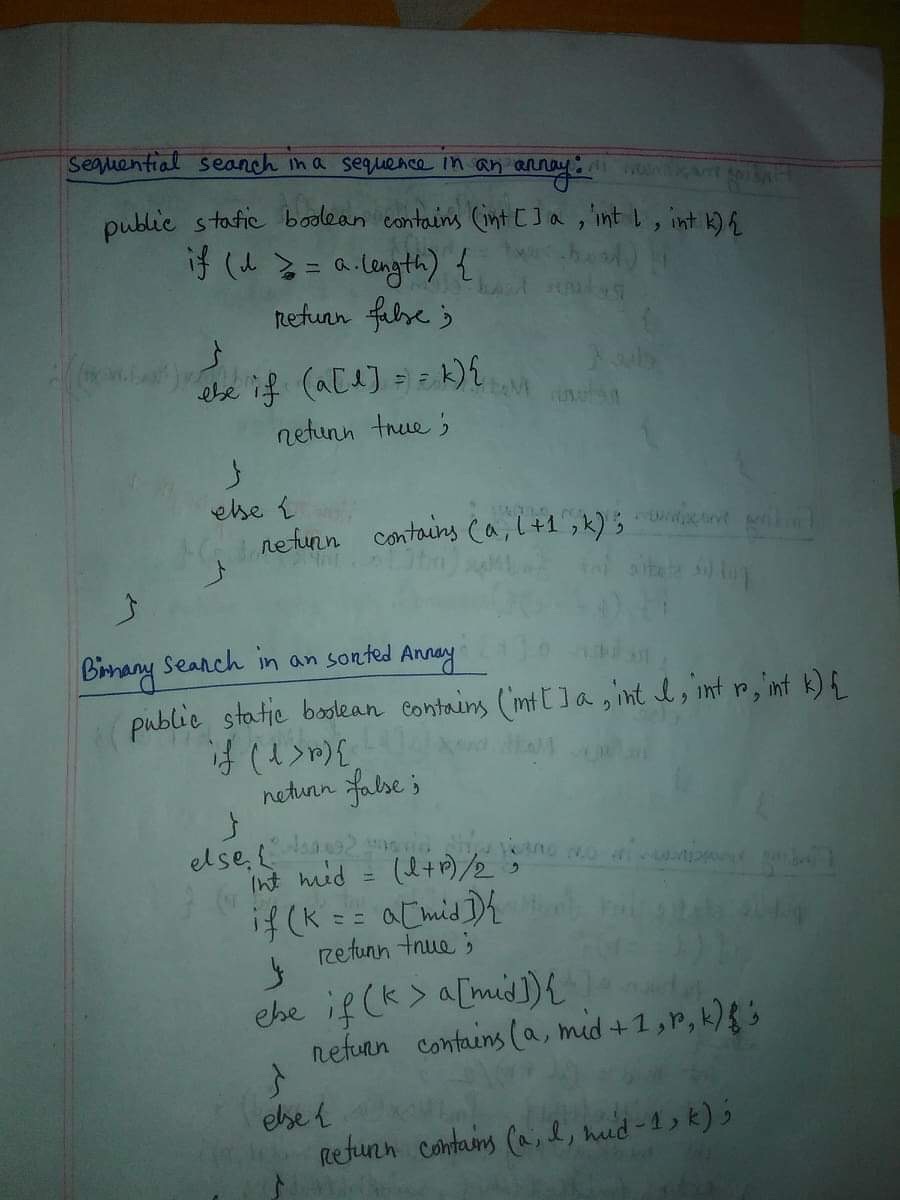 Sequential search in a sequence in an array:
public static boolean contains (int [] a , int l , int k) {
if (l >= a.length) {
return false ;
}
else if (a[l] == k) {
return true ;
}
else {
return contains (a, l+1 , k) ;
}
}
Binary Search in an sorted Array
public static boolean contains (int [] a , int l , int r , int k) {
if (l > r) {
return false ;
}
else {
int mid = (l+r)/2 ;
if (k == a[mid]) {
return true ;
}
else if (k > a[mid]) {
return contains (a, mid+1 , r, k) ;
}
else {
return contains (a, l, mid-1 , k) ;
}